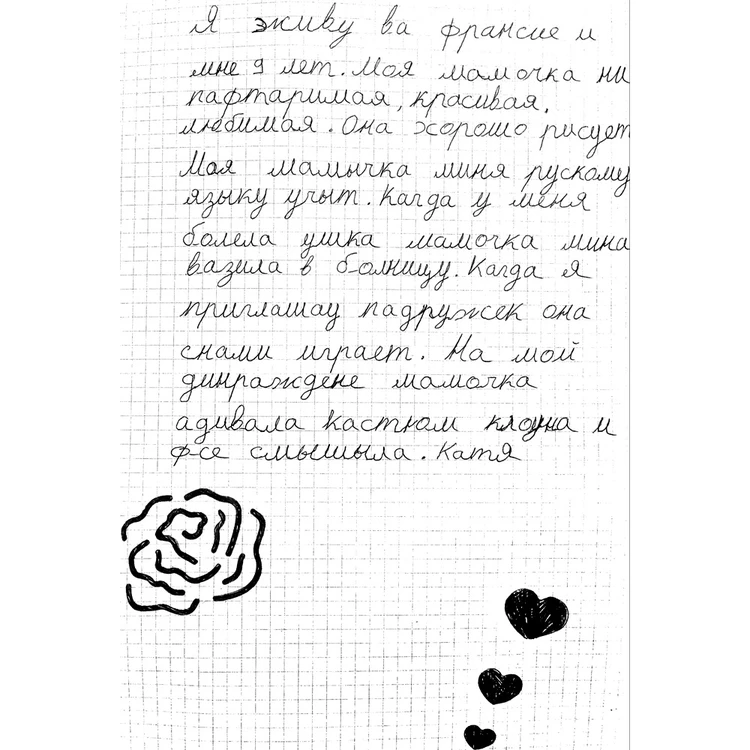 Я эживу ва франсие и
мне 9 лет. Моя мамочка ни
пафтаримая, красивая,
любимая. Она хорошо рисует
Моя мамычка миня рускому
языку учыт. Кагда у меня
болела ушка мамочка мина
вазила в болницу. Кагда я
приглашау падружек она
снами играет. На мой
динражлене мамочка
адивала кастюм клоуна и
фсе смышыла. Катя